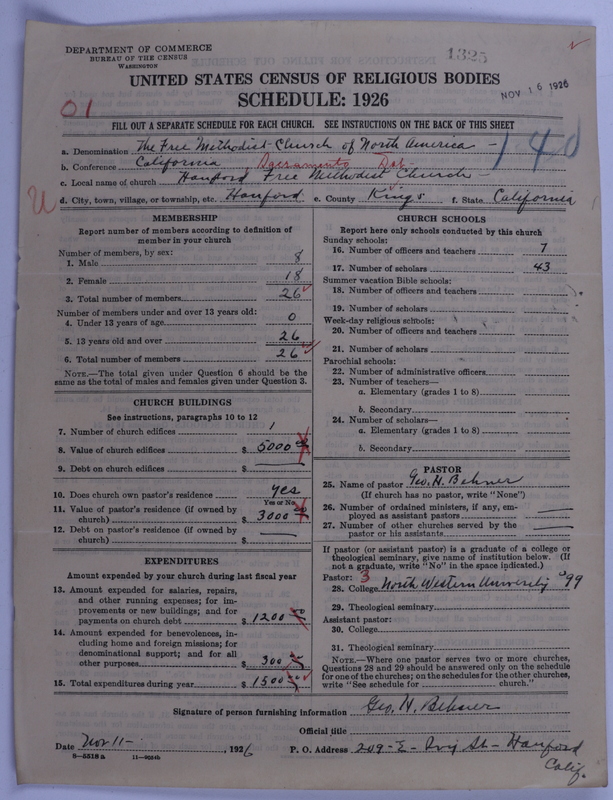 DEPARTMENT OF COMMERCE
BUREAU OF THE CENSUS
WASHINGTON
1325
NOV 16 1926
UNITED STATES CENSUS OF RELIGIOUS BODIES
SCHEDULE: 1926
01
140
FILL OUT A SEPARATE SCHEDULE FOR EACH CHURCH. SEE INSTRUCTIONS ON THE BACK OF THIS SHEET
a. Denomination The Free Methodist Church of North America
b. Conference California Sacramento
c. Local name of church Hanford Free Methodist Church
U
d. City, town, village, or township, etc. Hanford e. County Kings f. State California
MEMBERSHIP
Report number of members according to definition of
member in your church
Number of members, by sex:
1. Male 8
2. Female 18
3. Total number of members 26
Number of members under and over 13 years old:
4. Under 13 years of age 0
5. 13 years old and over 26
6. Total number of members 26
NOTE.—The total given under Question 6 should be
the same as the total of males and females given under Question 3.
CHURCH BUILDINGS
See instructions, paragraphs 10 to 12
7. Number of church edifices 1
8. Value of church edifices $ 5000 00
9. Debt on church edifices $
10. Does church own pastor's residence yes
Yes or No
11. Value of pastor's residence (if owned by
church) $ 3000 00
12. Debt on pastor's residence (if owned by
church) $
EXPENDITURES
Amount expended by your church during last fiscal year
13. Amount expended for salaries, repairs,
and other running expenses; for im-
provements or new buildings; and for
payments on church debt $ 1200 00
14. Amount expended for benevolences, in-
cluding home and foreign missions; for
denominational support; and for all
other purposes $ 300
15. Total expenditures during year $ 1500
CHURCH SCHOOLS
Report here only schools conducted by this church
Sunday schools:
16. Number of officers and teachers 7
17. Number of scholars 43
Summer vacation Bible schools:
18. Number of officers and teachers
19. Number of scholars
Week-day religious schools:
20. Number of officers and teachers
21. Number of scholars
Parochial schools:
22. Number of administrative officers
23. Number of teachers—
a. Elementary (grades 1 to 8)
b. Secondary
24. Number of scholars—
a. Elementary (grades 1 to 8)
b. Secondary
PASTOR
25. Name of pastor Geo. H. Behner
(If church has no pastor, write "None")
26. Number of ordained ministers, if any, em-
ployed as assistant pastors
27. Number of other churches served by the
pastor or his assistants
If pastor (or assistant pastor) is a graduate of a college or
theological seminary, give name of institution below. (If
not a graduate, write "No" in the space indicated.)
Pastor: 3
28. College North Western University '99
29. Theological seminary
Assistant pastor:
30. College
31. Theological seminary
NOTE.—Where one pastor serves two or more churches,
Questions 28 and 29 should be answered only on the schedule
for one of the churches; on the schedules for the other churches,
write "See schedule for church."
Signature of person furnishing information Geo. H. Behner
Official title
Date Nov 11 —, 1926 P. O. Address 209 - E - St - Hanford
Calif.
8—5518 a 11—9034b